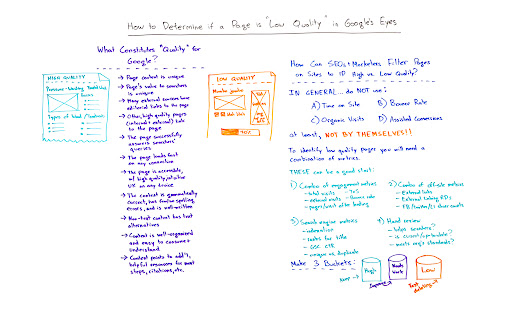 How to Determine if a Page is "Low Quality" in Google's Eyes
What Constitutes "Quality" for
Google?
HIGH QUALITY
LOW QUALITY
→ Page content is unique
→ Page's value to searchers
is unique
→ Many external sources have
editorial links to the page
→ Other, high quality pages
(internal + external) link
to the page
→ The page successfully
answers searchers'
queries
→ The page loads fast
on any connection
→ The page is accessible,
w/ high quality, intuitive
UX on any device
→ The content is grammatically
correct, has few/no spelling
errors, and is well-written
→ Non-text content has text
alternatives
→ Content is well-organized
and easy to consume +
understand
→ Content points to add'l,
helpful resources for next
steps, citations, etc.
How Can SEOs + Marketers Filter Pages
on Sites to ID High vs. Low Quality?
IN GENERAL... do NOT use:
A) Time on Site
B) Bounce Rate
C) Organic Visits
D) Assisted Conversions
at least, NOT BY THEMSELVES!!
To identify low quality pages you will need a
combination of metrics.
THESE can be a good start:
1) Combo of engagement metrics
- total visits
- external visits
- Bounce rate
- pages/visit after landing
2) Combo of off-site metrics
- External links
- External linking RDs
- PA
3) Search engine metrics
- indexation
- GSC CTR
- unique vs. duplicate
4) Hand review
- helps searchers?
- is current/up-to-date?
- meets org's standards?
Make 3 Buckets:
High
Needs
Work
Low
Keep →
Improve →
Test
deleting →